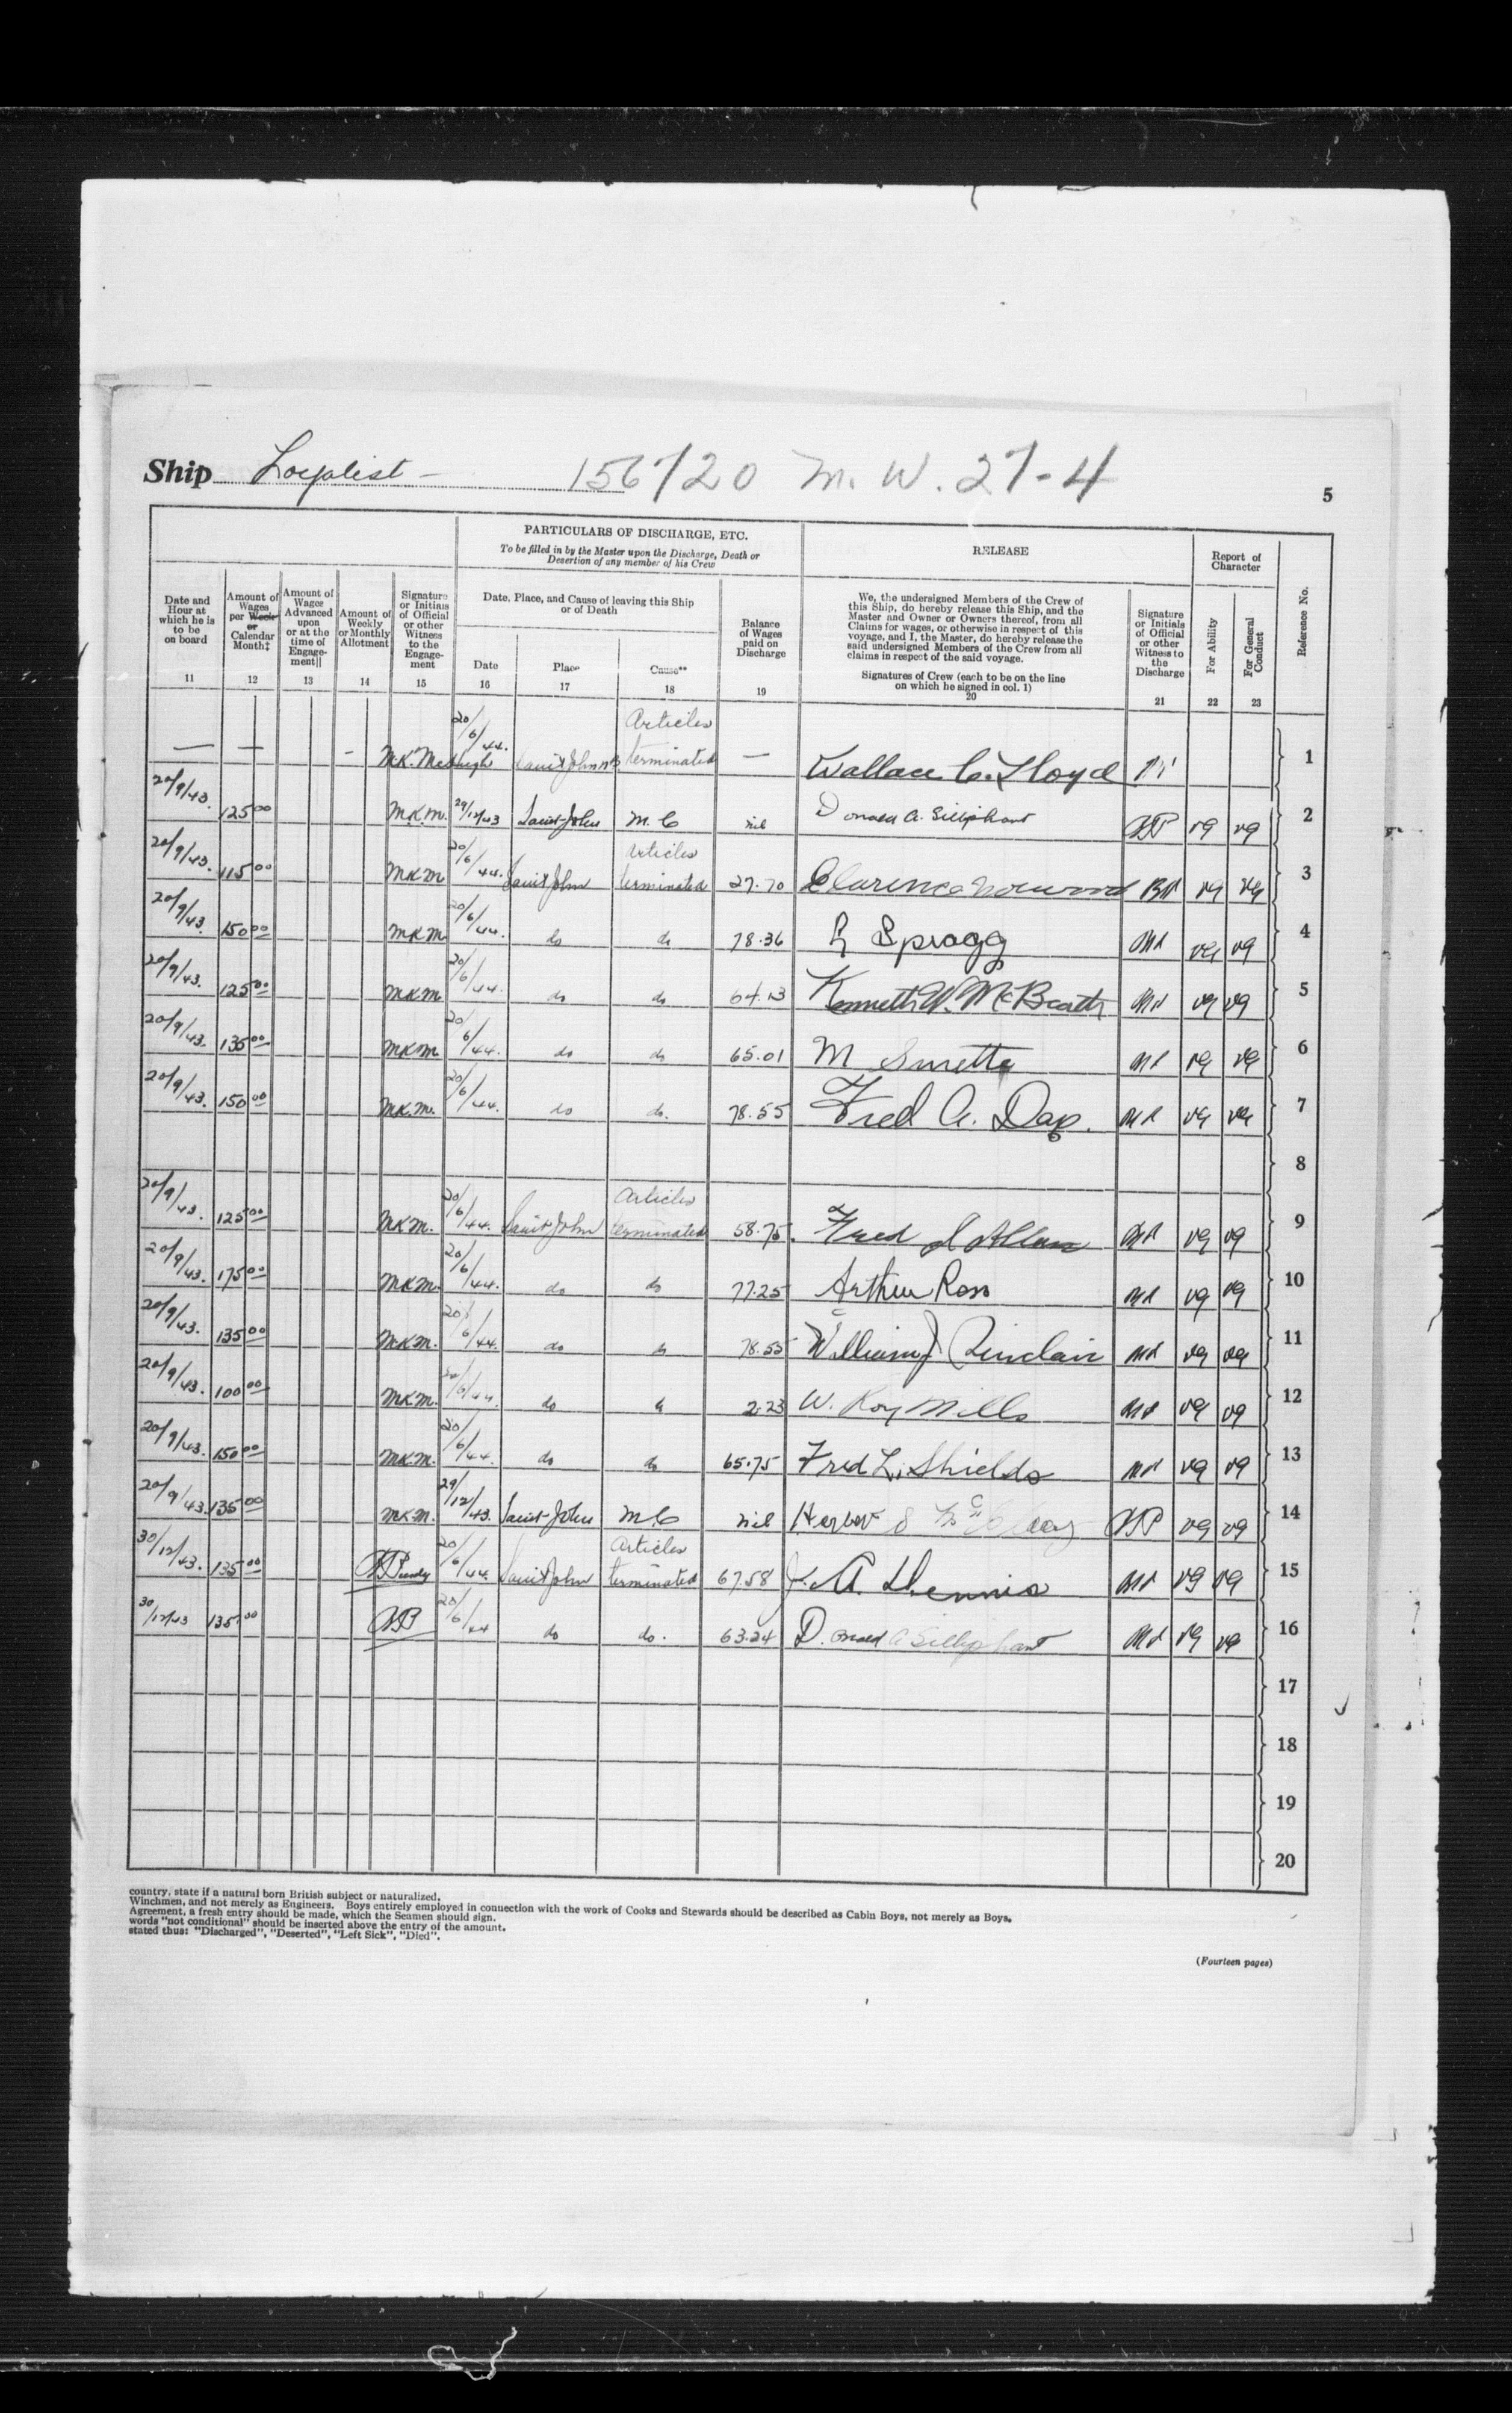 Ship Loyalist - 156720 M. W. 27-4
5
PARTICULARS OF DISCHARGE, ETC.
To be filled in by the Master upon the Discharge, Death or
Desertion of any member of his Crew
RELEASE
Report of
Character
Reference No.
Date and
Hour at
which he is
to be
on board
11
Amount of
Wages
per Week
or
Calendar
Month‡
12
Amount of
Wages
Advanced
upon
or at the
time of
Engage-
ment||
13
Amount of
Weekly
or Monthly
Allotment
14
Signature
or Initials
of Official
or other
Witness
to the
Engage-
ment
15
Date, Place, and Cause of leaving this Ship
or of Death
Date
16
Place
17
Cause**
18
Balance
of Wages
paid on
Discharge
19
We, the undersigned Members of the Crew of
this Ship, do hereby release this Ship, and the
Master and Owner or Owners thereof, from all
Claims for wages, or otherwise in respect of this
voyage, and I, the Master, do hereby release the
said undersigned Members of the Crew from all
claims in respect of the said voyage.
Signatures of Crew (each to be on the line
on which he signed in col. 1)
20
Signature
or Initials
of Official
or other
Witness to
the
Discharge
21
For Ability
22
For General
Conduct
23
— — - 20/6/44. Saint John NB Articles terminated — Wallace C. Lloyd 1
20/9/43. 125 00 M.K.M. 29/12/43 Saint John M.C nil Donald A. Silliphant vg vg 2
20/9/43. 115 00 MKM 20/6/44. Saint John Articles terminated 27.70 Clarence Norwood vg vg 3
20/9/43. 150 00 MKM 20/6/44. do do 78.36 Spragg vg vg 4
20/9/43. 125 00 MKM 20/6/44. do do 64.13 Kenneth W. McBeath vg vg 5
20/9/43. 135 00 MKM 20/6/44. do do 65.01 M vg vg 6
20/9/43. 150 00 M.K.M. 20/6/44. do do. 78.55 Fred A. vg vg 7
8
20/9/43. 125 00 MKM. 20/6/44. Saint John Articles terminated 58.75 Fred Allan vg vg 9
20/9/43. 175 00 MKM. 20/6/44. do do 77.25 Arthur Ross vg vg 10
20/9/43. 135 00 MKM. 20/6/44. do do 78.55 William J Sinclair vg vg 11
20/9/43. 100 00 MKM. 20/6/44. do do 2.23 W. Roy Mills vg vg 12
20/9/43. 150 00 MKM. 20/6/44. do do 65.75 Fred L. Shields vg vg 13
20/9/43. 135 00 MKM. 29/12/43. Saint John M.C nil vg vg 14
30/12/43. 135 00 20/6/44. Saint John Articles terminated 67.58 J. A. Dennis vg vg 15
30/12/43 135 00 20/6/44 do do. 63.24 Donald A Silliphant vg vg 16
17
18
19
20
country, state if a natural born British subject or naturalized.
Winchmen, and not merely as Engineers. Boys entirely employed in connection with the work of Cooks and Stewards should be described as Cabin Boys, not merely as Boys.
Agreement, a fresh entry should be made, which the Seamen should sign.
words "not conditional" should be inserted above the entry of the amount.
stated thus: "Discharged", "Deserted", "Left Sick", "Died".
(Fourteen pages)